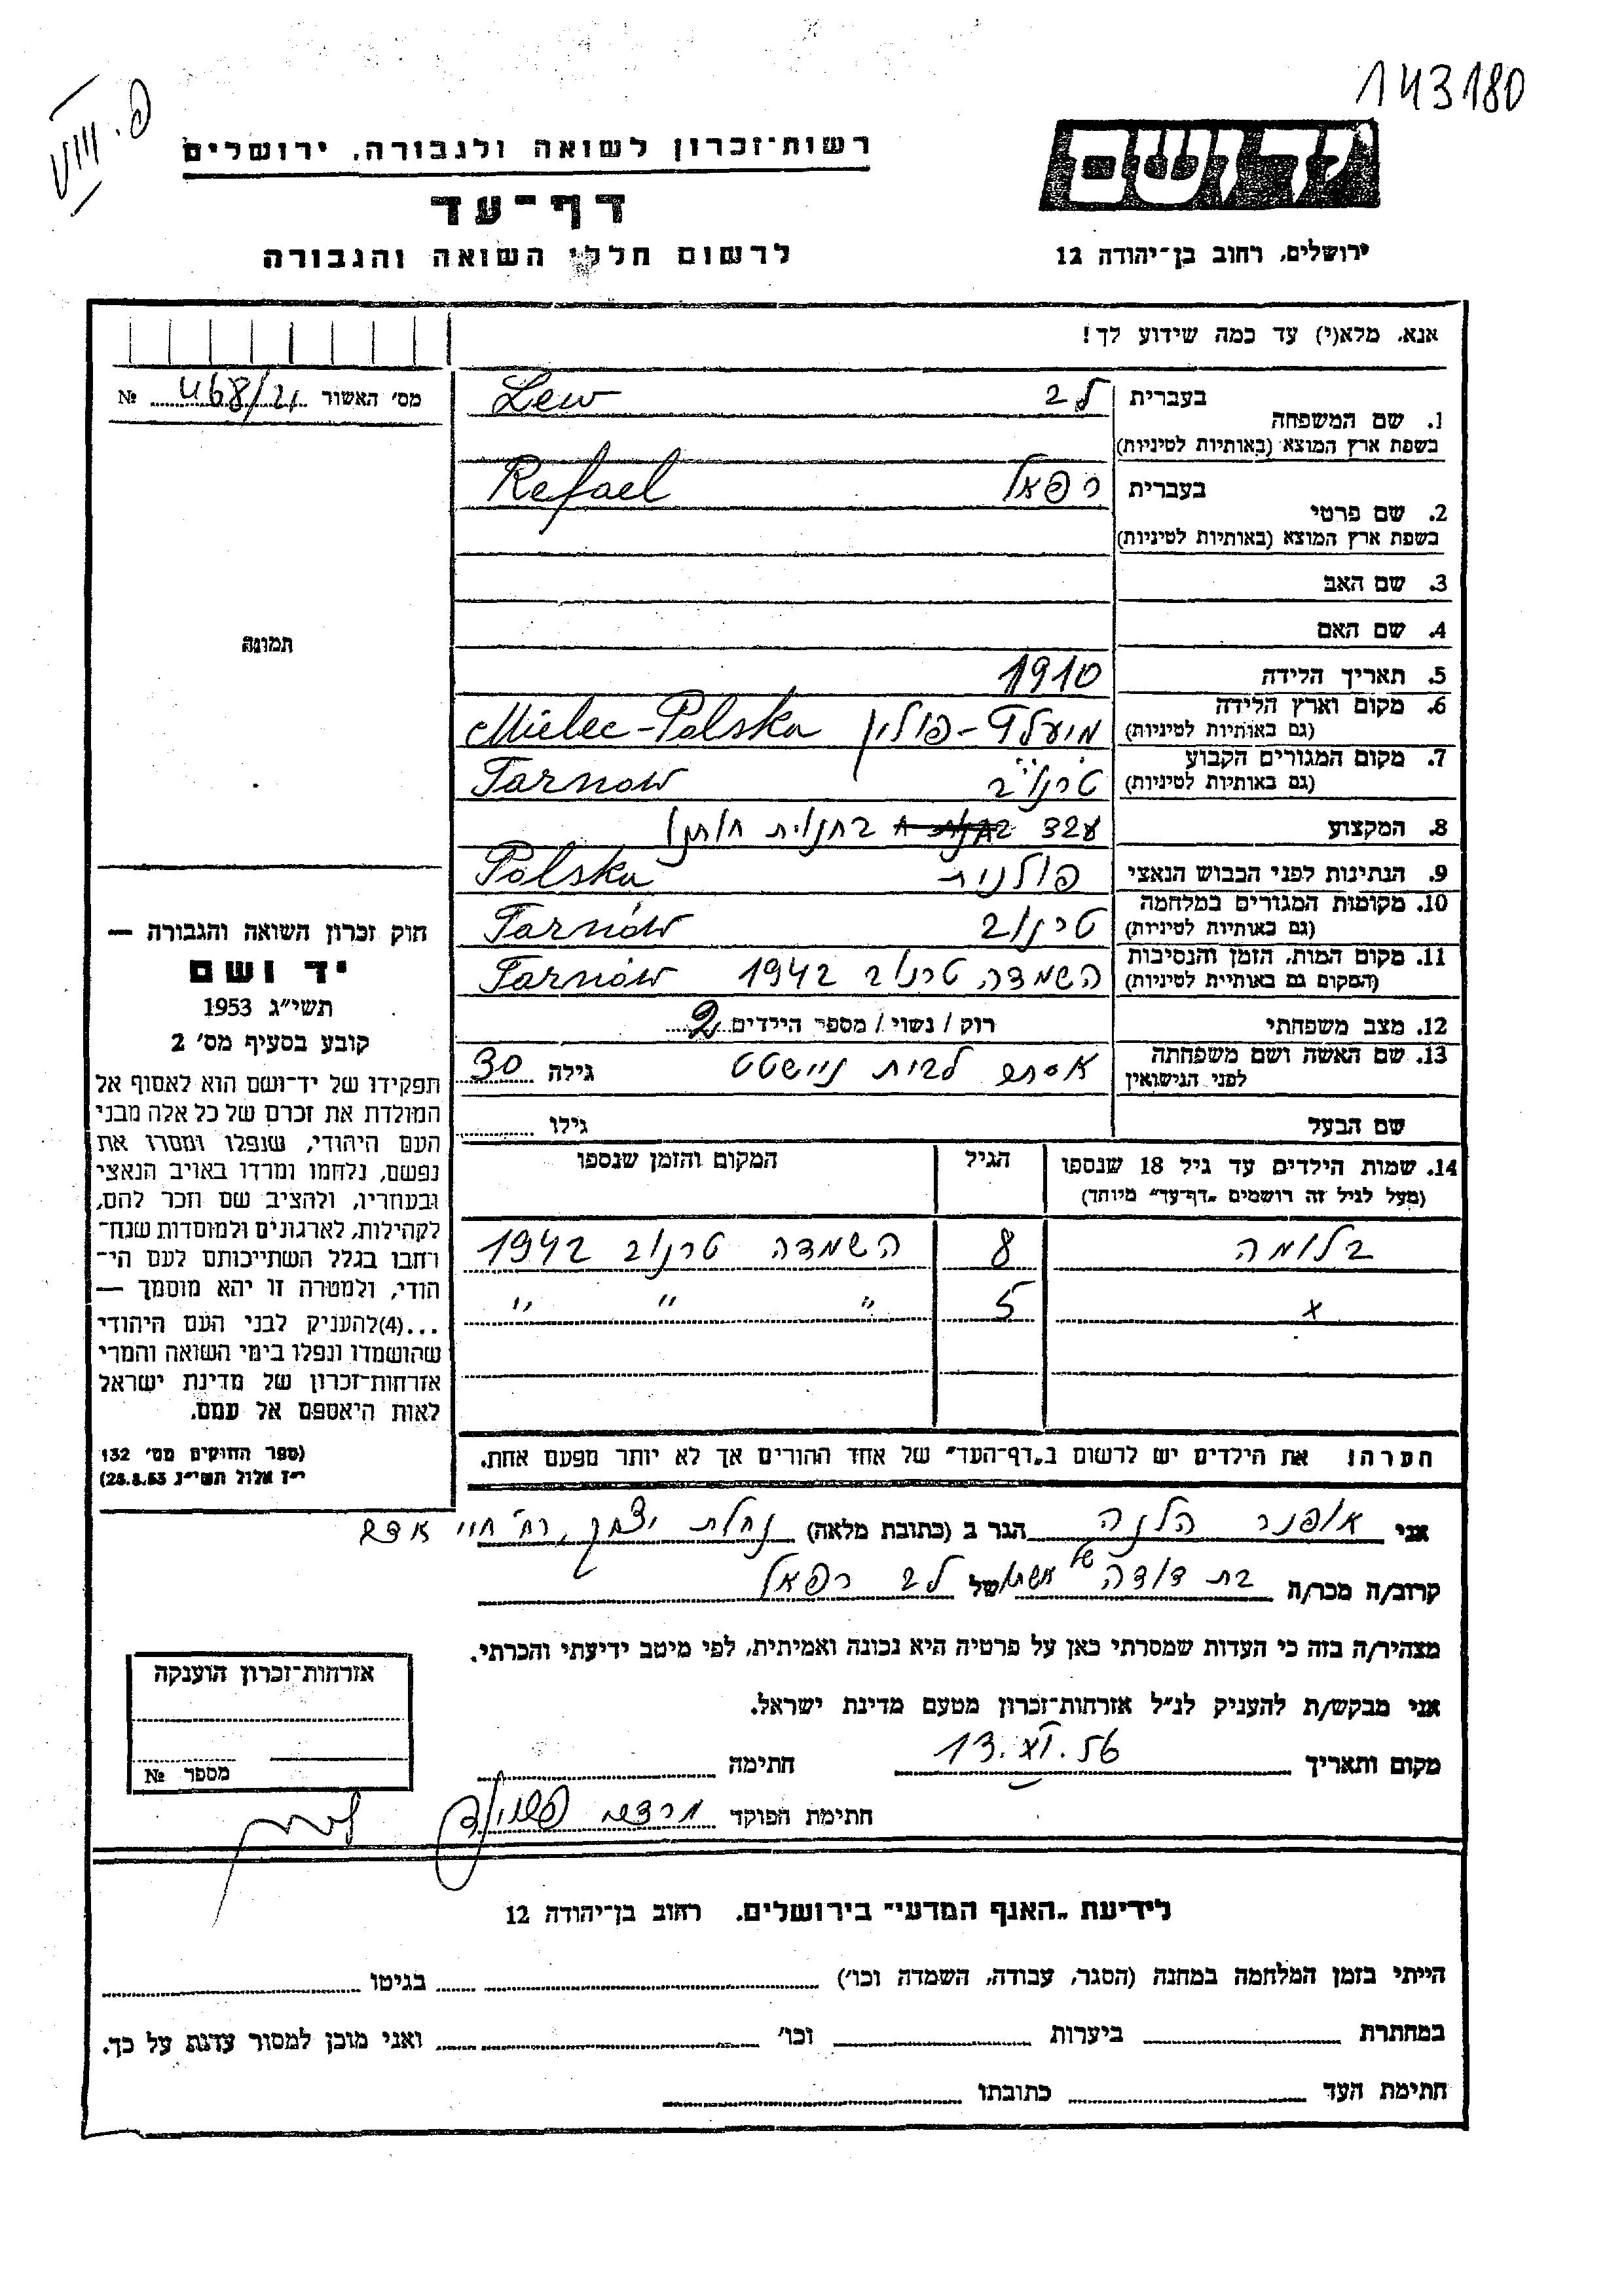 143180
פ. VIII
יד ושם
רשות־זכרון לשואה ולגבורה, ירושלים
דף־עד
לרשום חללי השואה והגבורה
ירושלים, רחוב בן־יהודה 12
אנא, מלא(י) עד כמה שידוע לך!
מס׳ האשור 468/21 №
1. שם המשפחה בעברית לב Lew
בשפת ארץ המוצא (באותיות לטיניות)
2. שם פרטי בעברית רפאל Refael
בשפת ארץ המוצא (באותיות לטיניות)
3. שם האב
4. שם האם
תמונה
5. תאריך הלידה 1910
6. מקום וארץ הלידה
(גם באותיות לטיניות) מיעלץ - פולין Mielec - Polska
7. מקום המגורים הקבוע
(גם באותיות לטיניות) טרנוב Tarnow
8. המקצוע עבד בחנות חותנו
9. הנתינות לפני הכבוש הנאצי פולנית Polska
10. מקומות המגורים במלחמה
(גם באותיות לטיניות) טרנוב Tarnów
11. מקום המות, הזמן והנסיבות
(המקום גם באותיות לטיניות) השמדה טרנוב 1942 Tarnów
12. מצב משפחתי רוק / נשוי / מספר הילדים 2
13. שם האשה ושם משפחתה
לפני הנישואין אסתר לבית ניישטט גילה 30
שם הבעל גילו
14. שמות הילדים עד גיל 18 שנספו הגיל המקום והזמן שנספו
(מעל לגיל זה רושמים „דף־עד״ מיוחד)
בלומה 8 השמדה טרנוב 1942
x 5 " " "
הערה! את הילדים יש לרשום ב„דף־העד״ של אחד ההורים אך לא יותר מפעם אחת.
חוק זכרון השואה והגבורה —
יד ושם
תשי״ג 1953
קובע בסעיף מס׳ 2
תפקידו של יד־ושם הוא לאסוף אל
המולדת את זכרם של כל אלה מבני
העם היהודי, שנפלו ומסרו את
נפשם, נלחמו ומרדו באויב הנאצי
ובעוזריו, ולהציב שם וזכר להם,
לקהילות, לארגונים ולמוסדות שנח־
רחבו בגלל השתייכותם לעם הי־
הודי, ולמטרה זו יהא מוסמך —
...(4)להעניק לבני העם היהודי
שהושמדו ונפלו בימי השואה והמרי
אזרחות־זכרון של מדינת ישראל
לאות היאספם אל עמם.
(ספר החוקים מס׳ 132
י״ז אלול תשי״ג 28.8.53)
אני אופנר הלנה הגר ב (כתובת מלאה) נחלת יצחק, רח׳
קרוב/ה מכר/ה בת דודה של אשתו של לב רפאל
מצהיר/ה בזה כי העדות שמסרתי כאן על פרטיה היא נכונה ואמיתית, לפי מיטב ידיעתי והכרתי.
אני מבקש/ת להעניק לנ״ל אזרחות־זכרון מטעם מדינת ישראל.
מקום ותאריך 13.XI.56 חתימה
חתימת הפוקד
אזרחות־זכרון הוענקה
מספר №
לידיעת „האגף המדעי״ בירושלים, רחוב בן־יהודה 12
הייתי בזמן המלחמה במחנה (הסגר, עבודה, השמדה וכו׳) בגיטו
במחתרת ביערות וכו׳ ואני מוכן למסור עדות על כך.
חתימת העד כתובתו